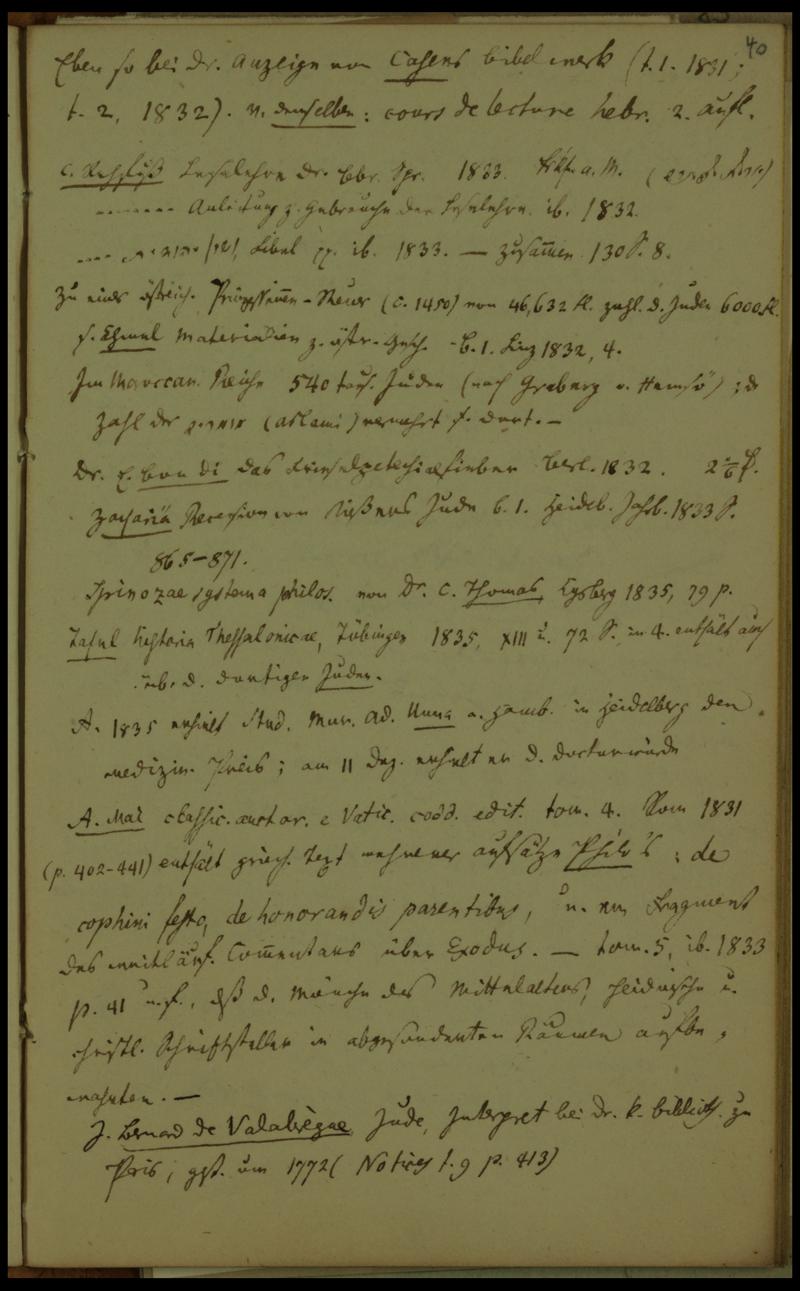 40
Eben so bei Dr. Anzeige von Cahens bibelwerk (t. 1. 1831;
t. 2, 1832). v. demselben: cours de lecture hebr. 2. aufl.
Leselehre der Ebr. Spr. 1833. Fkf. a. M.
Anleitung z. Gebrauche der Leselehre. ib. 1832.
Fibel pp. ib. 1833. — Zusam̅en 130 S. 8.
Zu einer östreich. Steuer (c. 1450) von 46,632 fl. zahl. d. Juden 6000 fl.
s. Chmel Materialien z. östr. Gesch. B. 1. Linz 1832, 4.
Im Maroccan. Reiche 540 taus. Juden (nach Graberg v. Hemsö); d
Zahl der (aslami) vermehrt s. dort. —
Dr. E. bon di das berl. 1832. 2 1/6 f.
Zachariä Recension von Rießers Jude b. 1. Heidelb. Jahrb. 1833 S.
865–871.
Spinozae systema philos. von Dr. C. Thomas, Kgsberg 1835, 79 p.
Tafel historia Thessalonicae, Tübingen 1835, XIII u. 72 S. in 4. enthält auch
üb. d. dortigen Juden.
A. 1835 erhielt Stud. Mor. Ad. Unna a. Hamb. in Heidelberg den
medizin. Preis; am 11 Dez. erhielt er d. doctorwürde
A. Mai classic. auctor. e Vatic. codd. edit. tom. 4. Rom 1831
(p. 402-441) enthält griech. Text mehrerer aufsätze Philo's: de
cophini festo, de honorandis parentibus, u. ein Fragment
des weitläuf. Com̅entars über Exodus. — tom. 5, ib. 1833
p. 41 u. f., daß d. Mönche des Mittelalters, heidnische u.
christl. Schriftsteller in abgesonderten Räumen aufbe-
wahrten. —
J. Bernard de Valabrègue Jude, Interpret bei Dr. k. biblioth. zu
Paris, gest. um 1772 (Notices t. 9 p. 413)